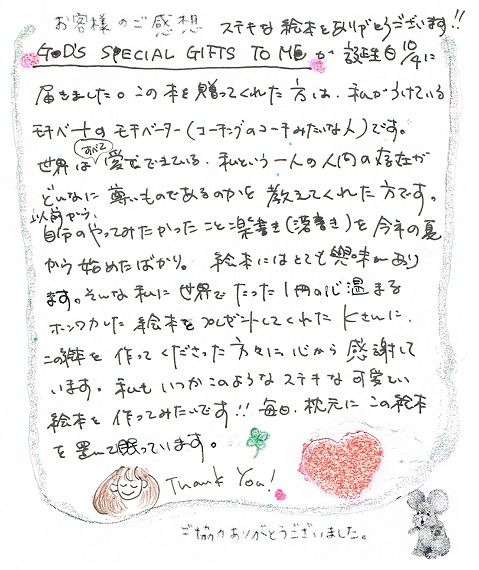 お客様のご感想 ステキな絵本をありがとうございます!!
GOD'S SPECIAL GIFTS TO MEが 誕生日10/4に
届きました。この本を贈ってくれた方は、私がうけている
モチベートのモチベーター(コーチングのコーチみたいな人)です。
世界はすべて愛でできている、私という一人の人間の存在が
どんなに尊いものであるのかを 教えてくれた方です。
以前から、
自分のやってみたかったこと楽書き(落書き)を今年の夏
から始めたばかり。 絵本にはとても興味があり
ます。そんな私に世界でたった1冊の心温まる
ホンワカした絵本をプレゼントしてくれたKさんに、
この絵本を作ってくださった方々に心から感謝して
います。私もいつかこのようなステキな可愛い
絵本を作ってみたいです!! 毎日、枕元にこの絵本
を置いて眠っています。
Thank You!
ご協力ありがとうございました。